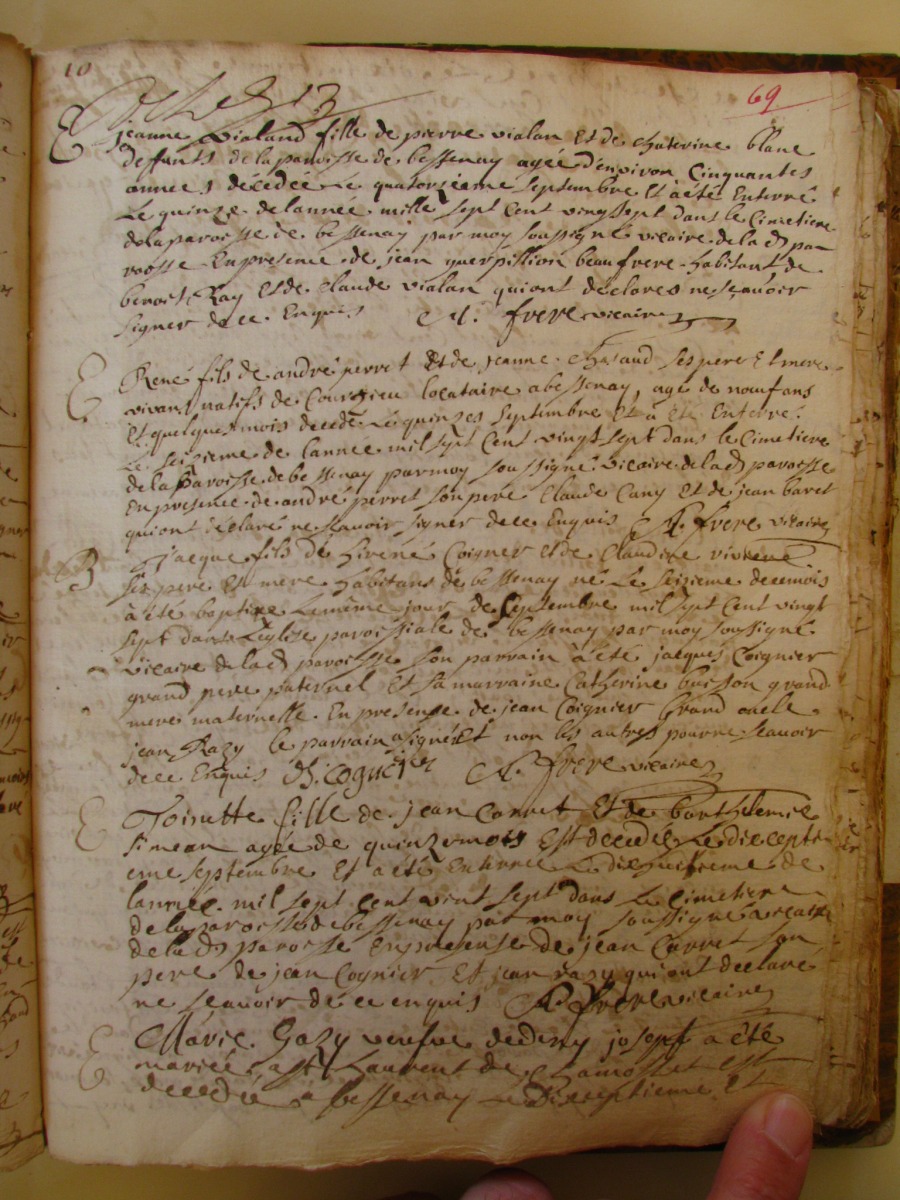 10
69
E
jeanne vialand fille de pierre vialan Et de Chaterine blanc
deffunts de la paroisse de bessenay agée d'environ Cinquantes
années décedée Le quatorzieme septembre Et à été Enterré
Le quinze de l'année mille sept Cent vingt sept dans le Cimetiere
de la paroisse de bessenay par moy soussigné vicaire de lad par
roosse En presence de jean guerpillion beaufrere habitant de
benoit Ray Et de Claude vialan qui ont déclarés ne sçavoir
signer de ce Enquis M. frere vicaire
E
René fils de andré perret Et de jeanne ses pere Et mere
vivant natifs de Courzieu locataire a bessenay, agé de noeuf ans
Et quelques mois décedé Le quinzes septembre Et à été Enterré
Le seizieme de l'année mil sept Cent vingt sept dans le Cimetiere
de la paroisse de bessenay par moy soussigné vicaire de lad paroisse
En presence de andré perret son pere Claude Cany Et de jean baret
qui ont declaré ne scavoir signer de ce Enquis M. frere vicaire
B
Jacque fils de hirené Coignet et de Claudine
ses pere Et mere habitans de bessenay né Le seizieme
à été baptize Le même jour de septembre mil sept Cent vingt
sept dans L'eglize paroissiale de bessenay par moy soussigné
vicaire de lad paroisse son parrain à été jacques Coignier
grand pere paternel Et sa marraine Catherine buisson grand
mere maternelle En presense de jean Coignier Grand oncle
jean Razy le parrain a signé Et non les autres pour ne sçavoir
de ce Enquis M. frere vicaire
E
Toinette fille de jean Carret Et de barthelemie
simean agée de quinze mois Est decedée Le diecepti
eme septembre Et a été Enterrée Le diezhuitieme de
lannée mil sept Cent vint sept dans Le Cimetiere
de la paroisse de bessenay par moy soussigné vicaire
de lad paroisse En presense de jean Carret son
pere de jean Cognier Et jean razy qui ont declaré
ne scavoir de ce enquis M. frere vicaire
E
Marie Gazy veufve de deny josept a été
mariée a st Laurent de Chamosset est
decedée a bessenay Le Diexeptieme Et